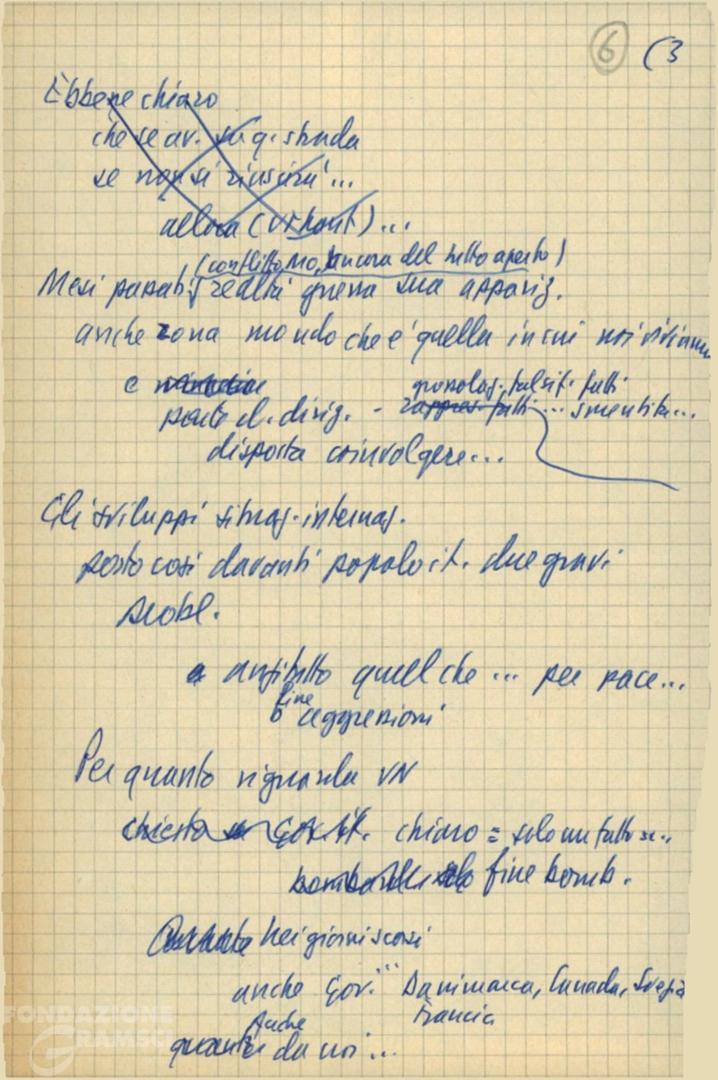 6 (3
Ebbene chiaro
che se av. su q. strada
se non si riuscirà...
allora (U Thant)...
(conflitto MO, ancora del tutto aperto)
Mesi passati realtà guerra sua appariz.
anche zona mondo che è quella in cui noi viviamo
e
grossolaz. falsif. fatti
parte cl. dirig. - rappres. fatti ... smentite...
disposta coinvolgere...
Gli sviluppi situaz. internaz.
posto così davanti popolo it. due gravi
probl.
anzitutto quel che ... per pace...
fine
aggressioni
Per quanto riguarda VN
chiesto Gov. it. chiaro = solo un fatto
bombard. fine bomb.
Nei giorni scorsi
anche Gov. ... Danimarca, Canada, Svezia
Anche Francia
quanti da noi...
FONDAZIONE
GRAMSCI